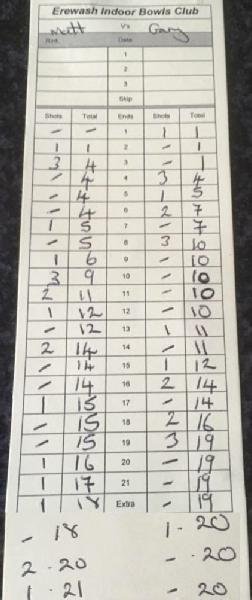 Erewash Indoor Bowls Club
Matt V's Gary
Rink Date
1
2
3
Skip
Shots Total Ends Shots Total
- - 1 1 1
1 1 2 - 1
3 4 3 - 1
- 4 4 3 4
- 4 5 1 5
- 4 6 2 7
1 5 7 - 7
- 5 8 3 10
1 6 9 - 10
3 9 10 - 10
2 11 11 - 10
1 12 12 - 10
- 12 13 1 11
2 14 14 - 11
- 14 15 1 12
- 14 16 2 14
1 15 17 - 14
- 15 18 2 16
- 15 19 3 19
1 16 20 - 19
1 17 21 - 19
1 18 Extra - 19
- 18 1 - 20
2 - 20 - - 20
1 - 21 - 20